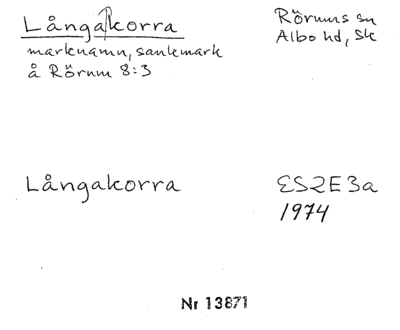 Långakorra
Rörums sn
Albo hd, Sk
marknamn, sankmark
å Rörum 8:3
Långakorra
ES2E3a
1974
Nr 13871